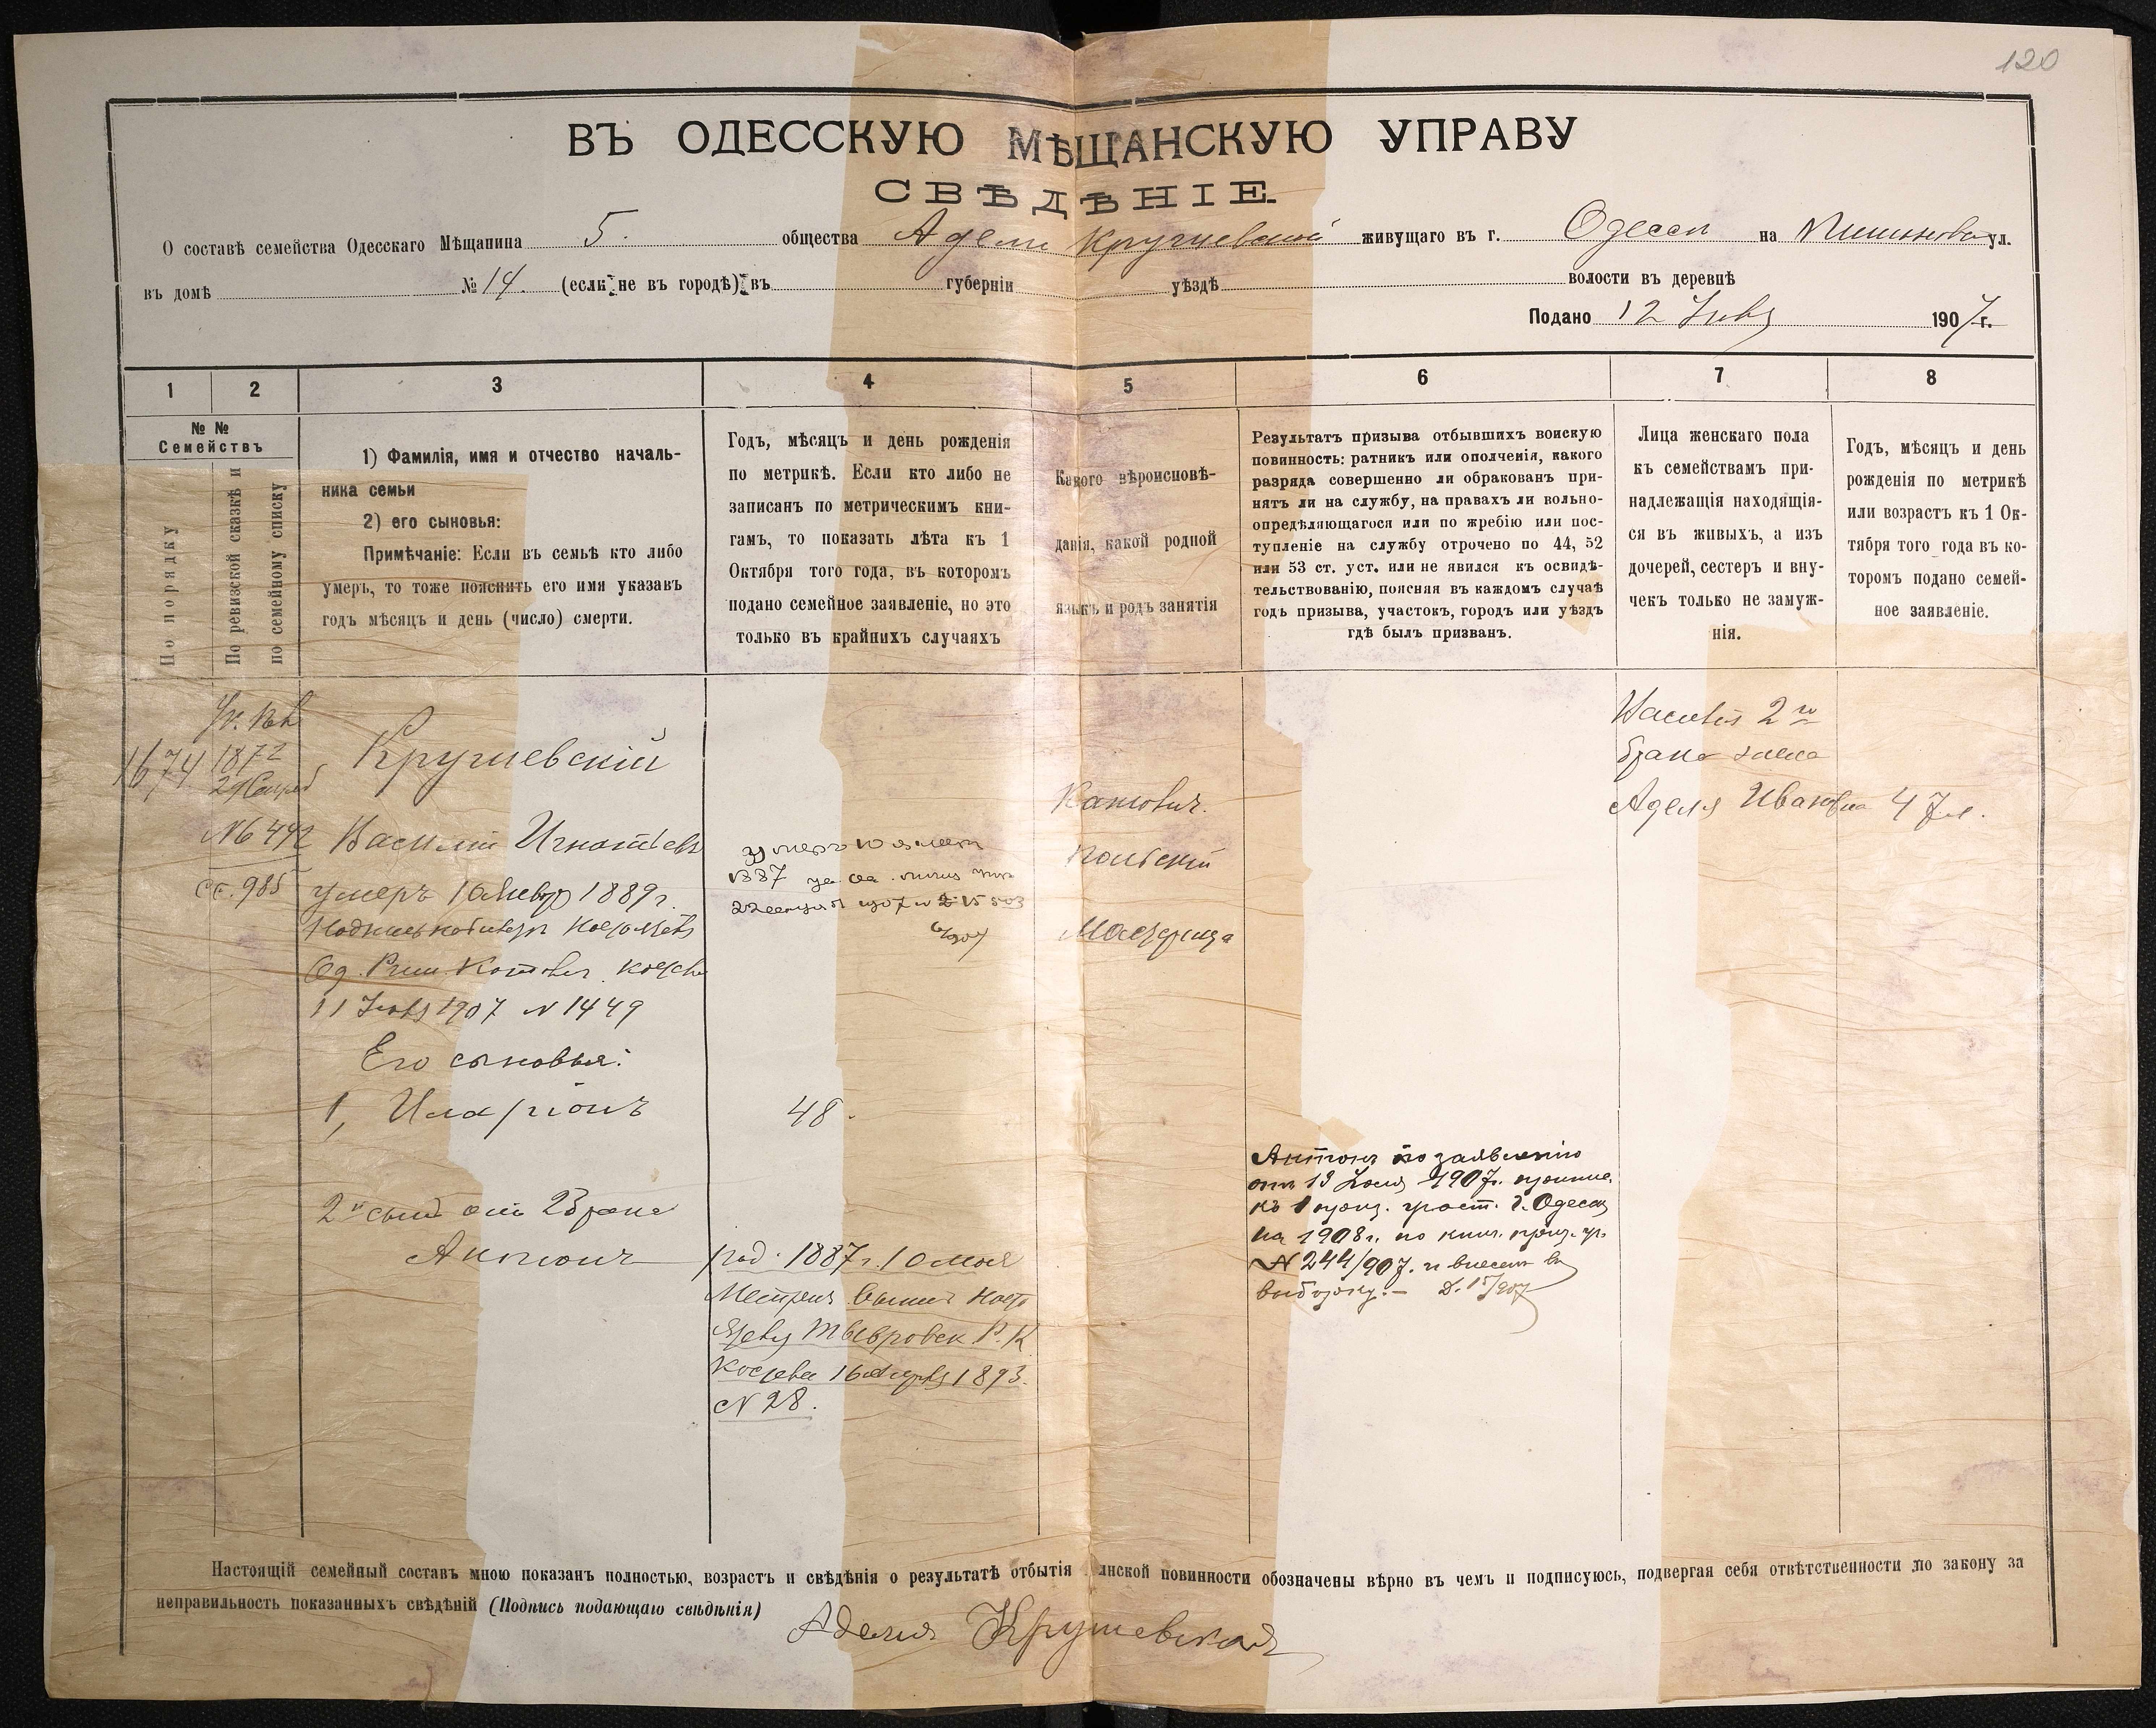 120
ВЪ ОДЕССКУЮ МѢЩАНСКУЮ УПРАВУ
СВѢДѢНІЕ
О составѣ семейства Одесскаго Мѣщанина 5. общества Адели Крушевской живущаго въ г. Одессѣ на ул.
въ домѣ № 14. (если не въ городѣ) въ губерніи уѣздѣ волости въ деревнѣ
Подано 12 1907 г.
1 2 3 4 5 6 7 8
№ №
Семействъ
По порядку
По ревизской сказкѣ и
по семейному списку
1) Фамилія, имя и отчество началь-
ника семьи
2) его сыновья:
Примѣчаніе: Если въ семьѣ кто либо
умеръ, то тоже пояснить его имя указавъ
годъ мѣсяцъ и день (число) смерти.
Годъ, мѣсяцъ и день рожденія
по метрикѣ. Если кто либо не
записанъ по метрическимъ кни-
гамъ, то показать лѣта къ 1
Октября того года, въ которомъ
подано семейное заявленіе, но это
только въ крайнихъ случаяхъ
Какого вѣроисповѣ-
данія, какой родной
языкъ и родъ занятія
Результатъ призыва отбывшихъ воискую
повинность: ратникъ или ополченія, какого
разряда совершенно ли обракованъ при-
нятъ ли на службу, на правахъ ли вольно-
опредѣляющагося или по жребію или пос-
тупленіе на службу отрочено по 44, 52
или 53 ст. уст. или не явился къ освидѣ-
тельствованію, поясняя въ каждомъ случаѣ
годъ призыва, участокъ, городъ или уѣздъ
гдѣ былъ призванъ.
Лица женскаго пола
къ семействамъ при-
надлежащія находящія-
ся въ живыхъ, а изъ
дочерей, сестеръ и вну-
чекъ только не замуж-
нія.
Годъ, мѣсяцъ и день
рожденія по метрикѣ
или возрастъ къ 1 Ок-
тября того года въ ко-
торомъ подано семей-
ное заявленіе.
1674
1872
№ 6442
ст. 985
Крушевскій
Василій Игнатьевъ
умеръ 10 Янвр 1889 г.
11 1907 № 1449
Его сыновья:
1, Иларіонъ
48.
2й сынъ отъ 2 брака
Антонъ
умеръ
1887
род. 1887 г. 10 мая
Р. К.
1893.
№ 28.
Католич.
Польскій
Антонъ по заявленію
отъ 13 Іюля 1907 г.
къ 1 приз. участ. г. Одессы
на 1908 г. по книг. приз. уч.
№ 244/907. и внесенъ въ
Василія 2го
брака жена
Аделя Ивановна 47 л.
Настоящій семейный составъ мною показанъ полностью, возрастъ и свѣдѣнія о результатѣ отбытія инской повинности обозначены вѣрно въ чемъ и подписуюсь, подвергая себя отвѣтственности по закону за
неправильность показанныхъ свѣдѣній (Подпись подающаго свѣдѣнія)
Аделя Крушевская